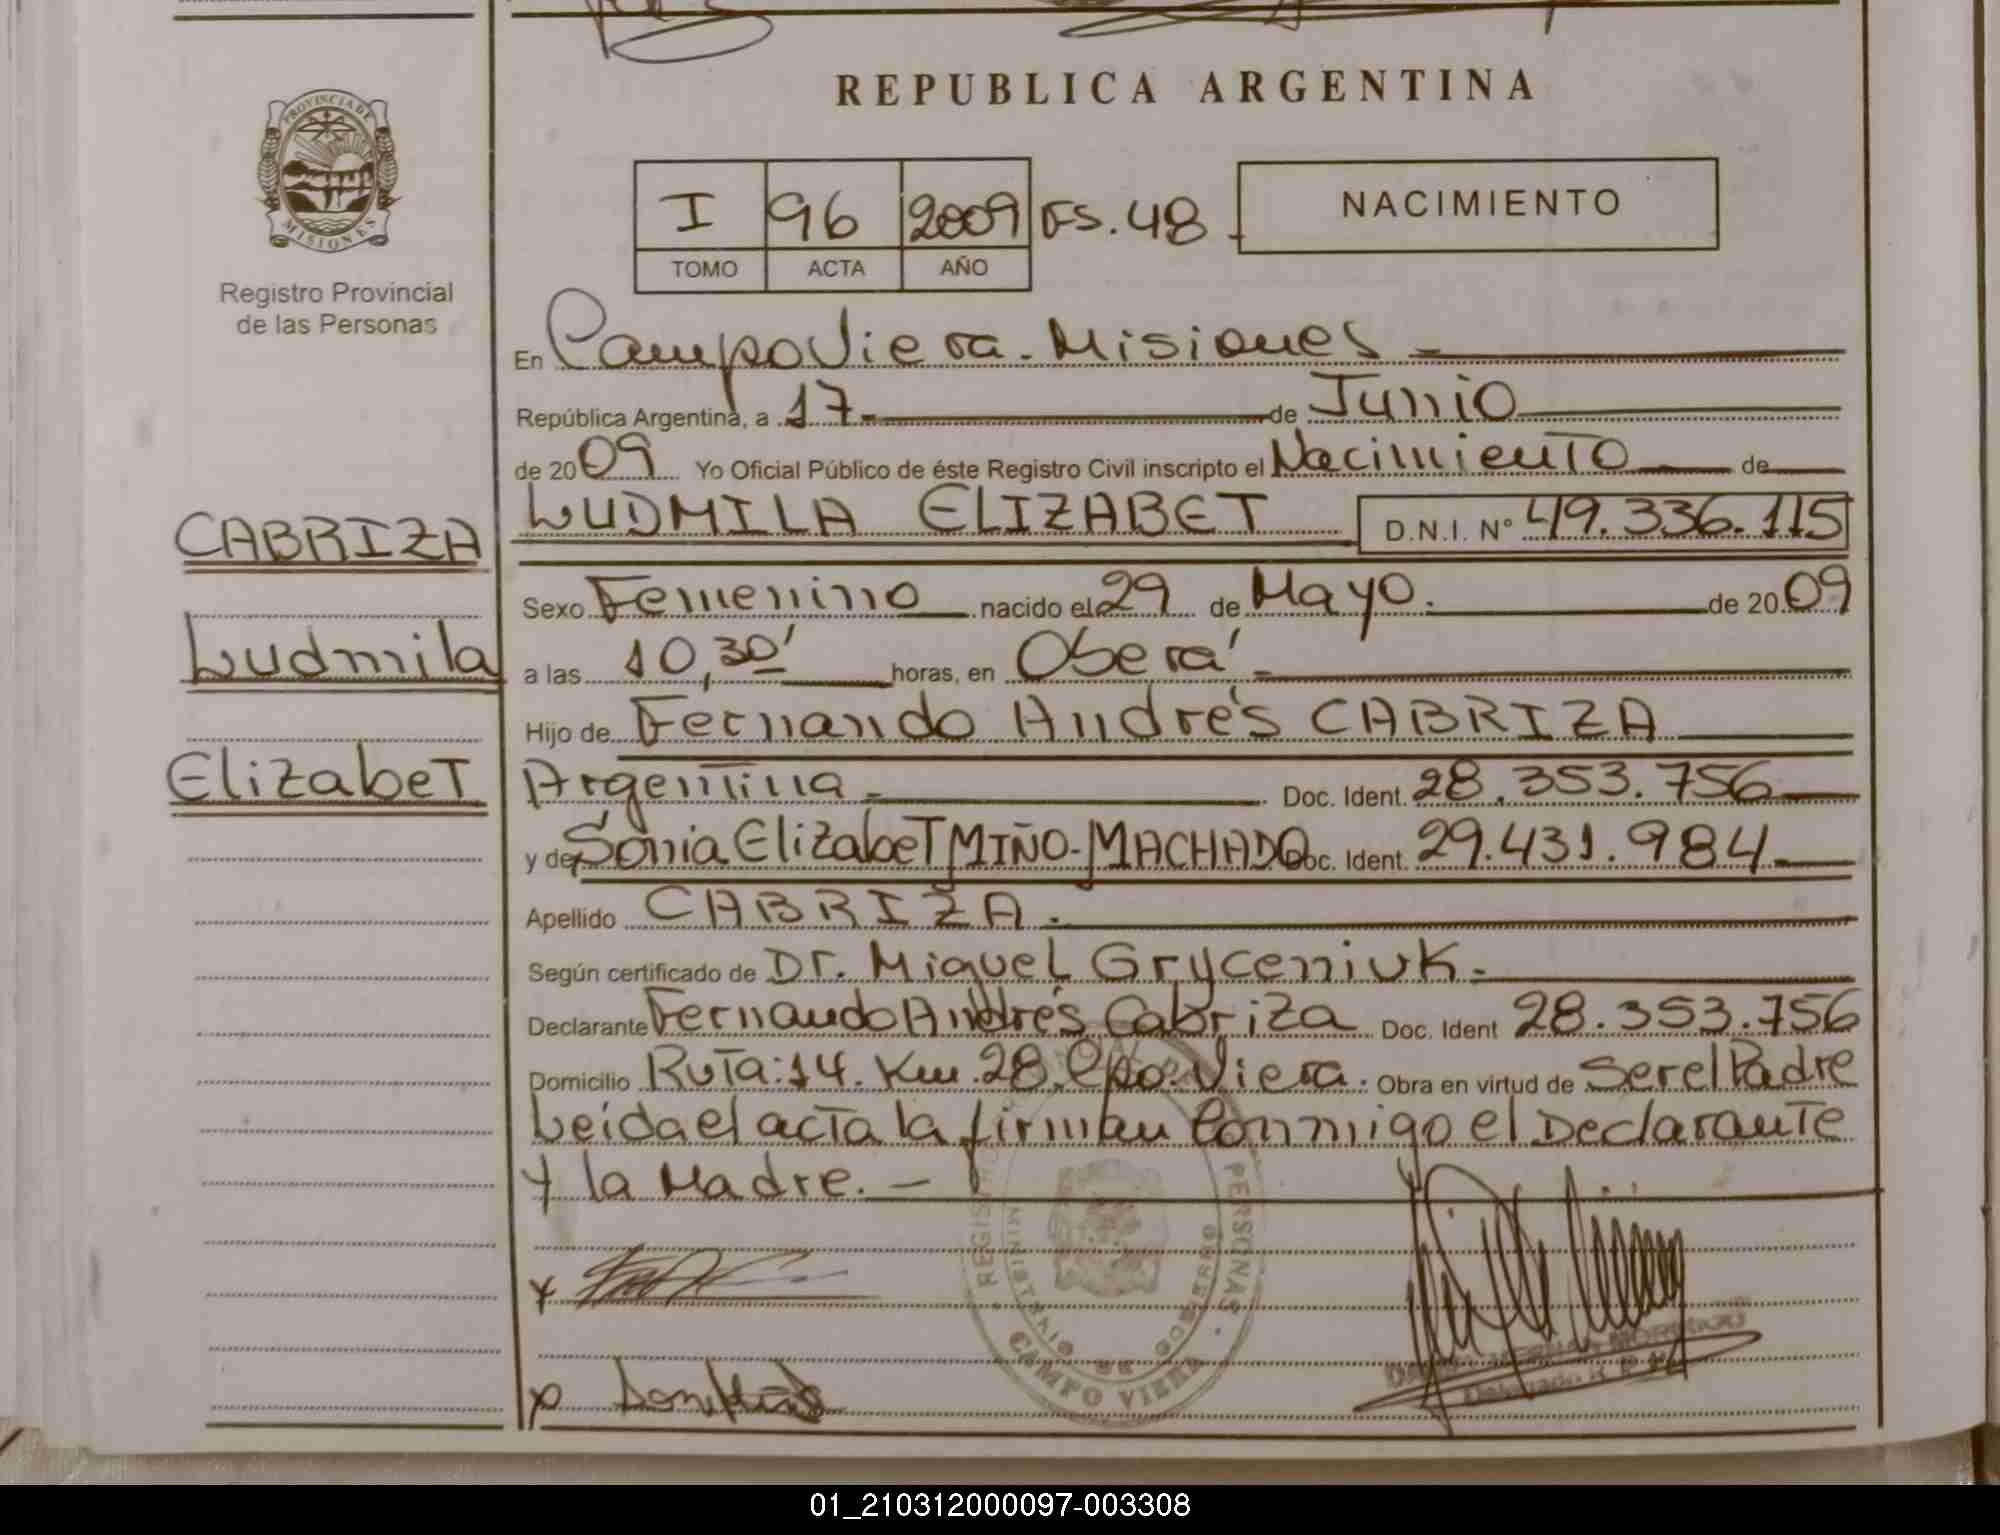 REPUBLICA ARGENTINA
PROVINCIA DE
MISIONES
Registro Provincial
de las Personas
I 96 2009 FS. 48
TOMO ACTA AÑO
NACIMIENTO
En Campo Viera - Misiones
República Argentina, a 17 de Junio
de 2009 Yo Oficial Público de éste Registro Civil inscripto el Nacimiento de
CABRIZA
LUDMILA ELIZABET D.N.I. Nº 49.336.115
Sexo Femenino nacido el 29 de Mayo. de 2009
Ludmila
a las 10,30' horas, en Oberá
Hijo de Fernando Andrés CABRIZA
Elizabet
Argentina Doc. Ident. 28.353.756
y de Sonia Elizabet MIÑO-MACHADO Doc. Ident. 29.431.984
Apellido CABRIZA.
Según certificado de Dr. Miguel Gryceniuk.
Declarante Fernando Andrés Cabriza Doc. Ident 28.353.756
Domicilio Ruta:14. Km.28. Cpo. Viera. Obra en virtud de Ser el Padre
Leída el acta la firman Conmigo el Declarante
y la Madre. -
PERSONAS
CAMPO VIERA
01_210312000097-003308